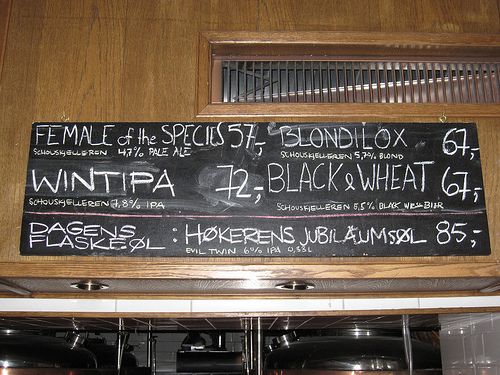 FEMALE of the SPECIES 57,-
SCHOUSKJELLEREN 4,7% PALE ALE
BLONDILOX 67,-
SCHOUSKJELLEREN 5,7% BLOND
WINTIPA 72,-
SCHOUSKJELLEREN 7,8% IPA
BLACK & WHEAT 67,-
SCHOUSKJELLEREN 5,5% BLACK WEISSBIER
DAGENS FLASKEØL : HØKERENS JUBILÄUMSØL 85,-
EVIL TWIN 6% IPA 0,33L